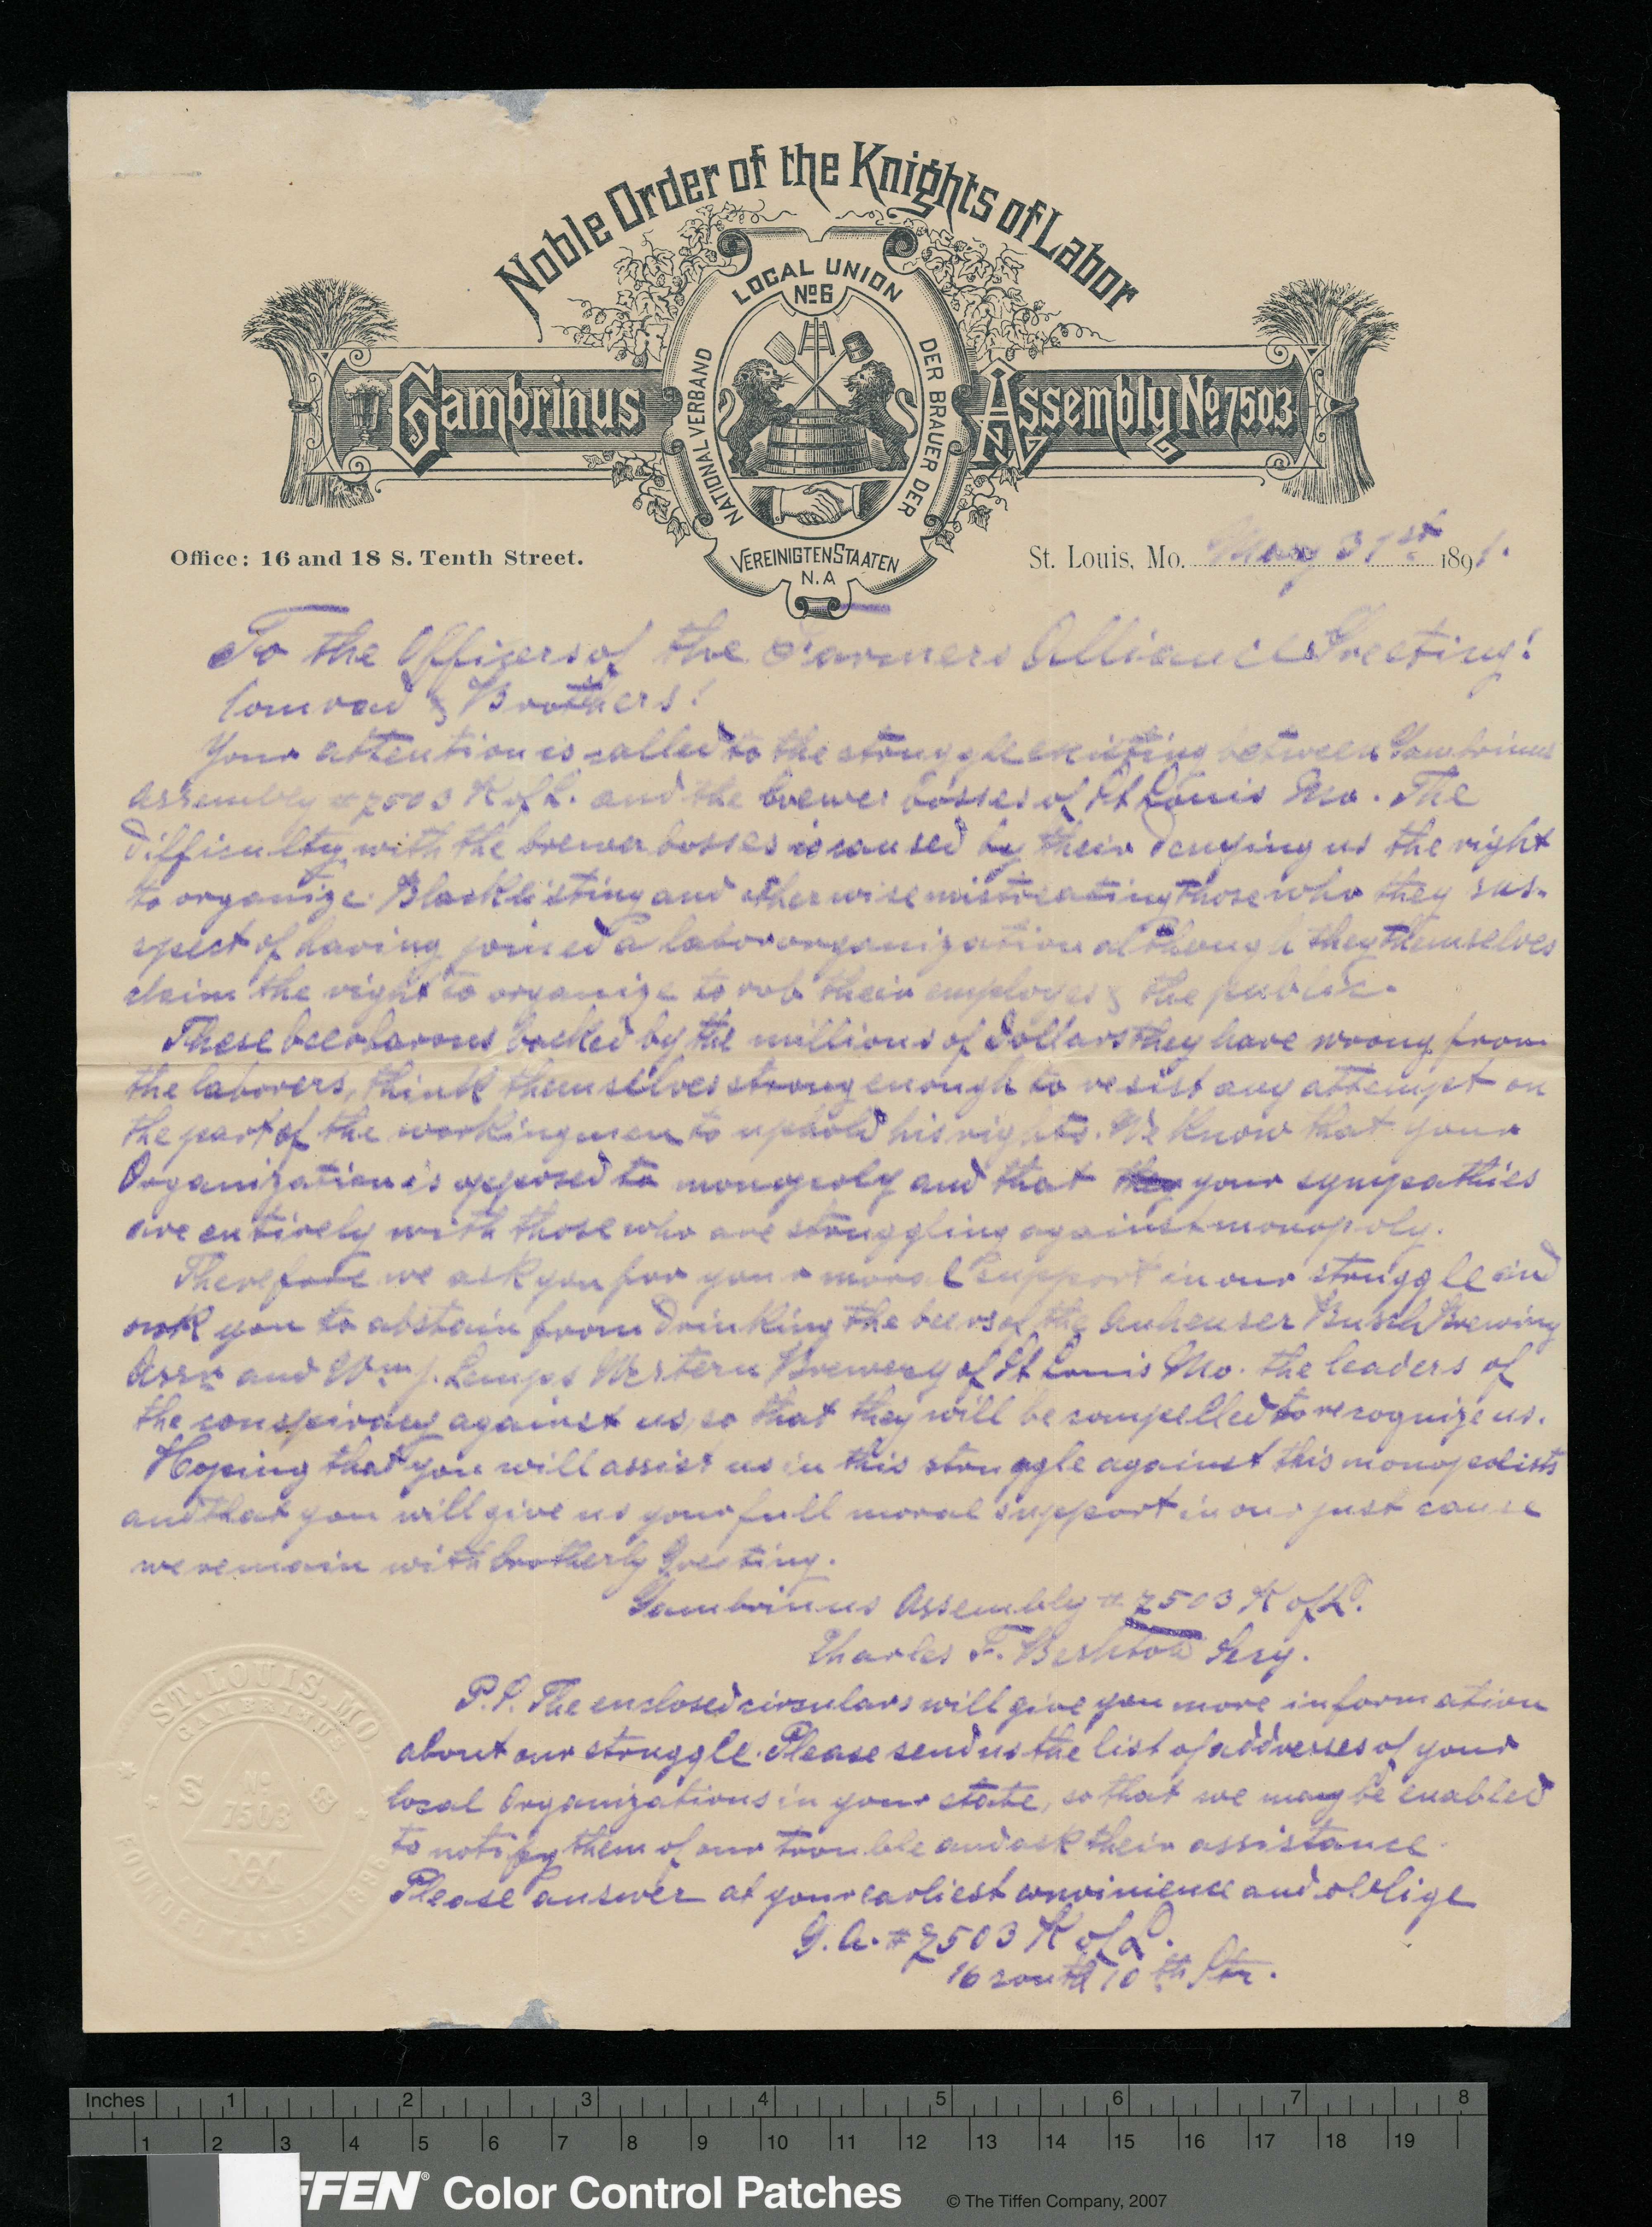 Noble Order of the Knights of Labor
LOCAL UNION
No 6
NATIONAL VERBAND
DER BRAUER DER
VEREINIGTEN STAATEN
N.A
Gambrinus
Assembly No 7503
Office: 16 and 18 S. Tenth Street.
St. Louis, Mo. May 31st 1891.
To the Officers of the Farmers Alliance Greeting!
Comrad & Brothers!
Your attention is called to the struggle existing between Gambrinus
Assembly #7503 K of L. and the brewer bosses of St Louis Mo. The
difficulty with the brewer bosses is caused by their denying us the right
to organize. Blacklisting and otherwise mistreating those who they sus-
spect of having joined a labor organization although they themselves
claim the right to organize to rob their employes & the public.
These beerbarons backed by the millions of Dollars they have wrong from
the laborers, think themselves strong enough to resist any attempt on
the part of the workingmen to uphold his rights. We Know that your
Organization is opposed to monopoly and that your sympathies
are entirely with those who are struggling against monopoly.
Therefore we ask you for your moral support in our struggle and
ask you to abstain from drinking the beers of the Anheuser Busch Brewing
Assn and Wm J. Lemps Western Brewery of St Louis Mo. the leaders of
the conspiracy against us, so that they will be compelled to recognize us.
Hoping that you will assist us in this struggle against this monopolists
and that you will give us your full moral support in our just cause
we remain with brotherly Greeting.
Gambrinus Assembly #7503 K of L.
Charles F. Secy.
P.S. The enclosed circulars will give you more information
about our struggle. Please send us the list of addresses of your
local Organizations in your state, so that we may be enabled
to notify them of our trouble and ask their assistance.
Please answer at your earliest convinience and oblige
G.A. #7503 K of L.
16 south 10th Str.
ST. LOUIS, MO
GAMBRINUS
No
7503
Inches 1 2 3 4 5 6 7 8
1 2 3 4 5 6 7 8 9 10 11 12 13 14 15 16 17 18 19
FFEN® Color Control Patches
© The Tiffen Company, 2007